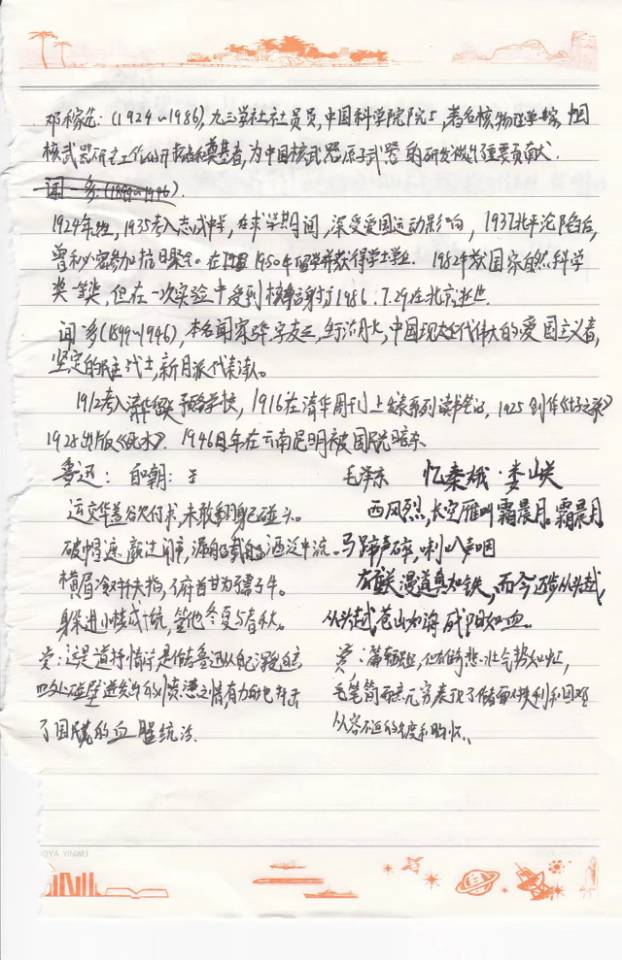 邓稼先：(1924~1986)，九三学社社员员，中国科学院院士，著名核物理学家，中国
核武器研制工作的开拓者和奠基者，为中国核武器原子武器的研发做出了重要贡献.
闻一多(1899~1946).
1924年出生，1935考入志成中学，在求学期间，深受爱国运动影响，1937北平沦陷后，
曾秘密参加抗日聚会. 在 1950年留学并获得学士学位. 1982年获国家自然科学
奖一等奖，但在一次实验中受到核辐射于1986.7.29在北京逝世.
闻一多(1899~1946)，本名闻家骅，字友三，中国现代伟大的爱国主义者，
坚定的民主战士，新月派代表诗人。
1912考入清华留美预备学校，1916在清华周刊上发表系列读书笔记，1925创作《七子之歌》
1928出版《死水》. 1946年在云南昆明被国民党暗杀
鲁迅：自嘲： 毛泽东 忆秦娥·娄山关
运交华盖欲何求，未敢翻身已碰头。 西风烈，长空雁叫霜晨月。霜晨月
破帽遮颜过闹市，漏船载酒泛中流. 马蹄声碎，喇叭声咽
横眉冷对千夫指，俯首甘为孺子牛。 雄关漫道真如铁，而今迈步从头越，
躲进小楼成一统，管他冬夏与春秋。 从头越苍山如海，残阳如血。
赏：这是首抒情诗是作者鲁迅从自己深受迫害 赏：篇幅短，但雄奇悲壮气势如虹，
四处碰壁迸发出的愤懑之情，有力的抨击 笔简而意无穷表现了作者面对失利和困难
了国民党的血腥统治. 从容不迫的气度和胸怀.